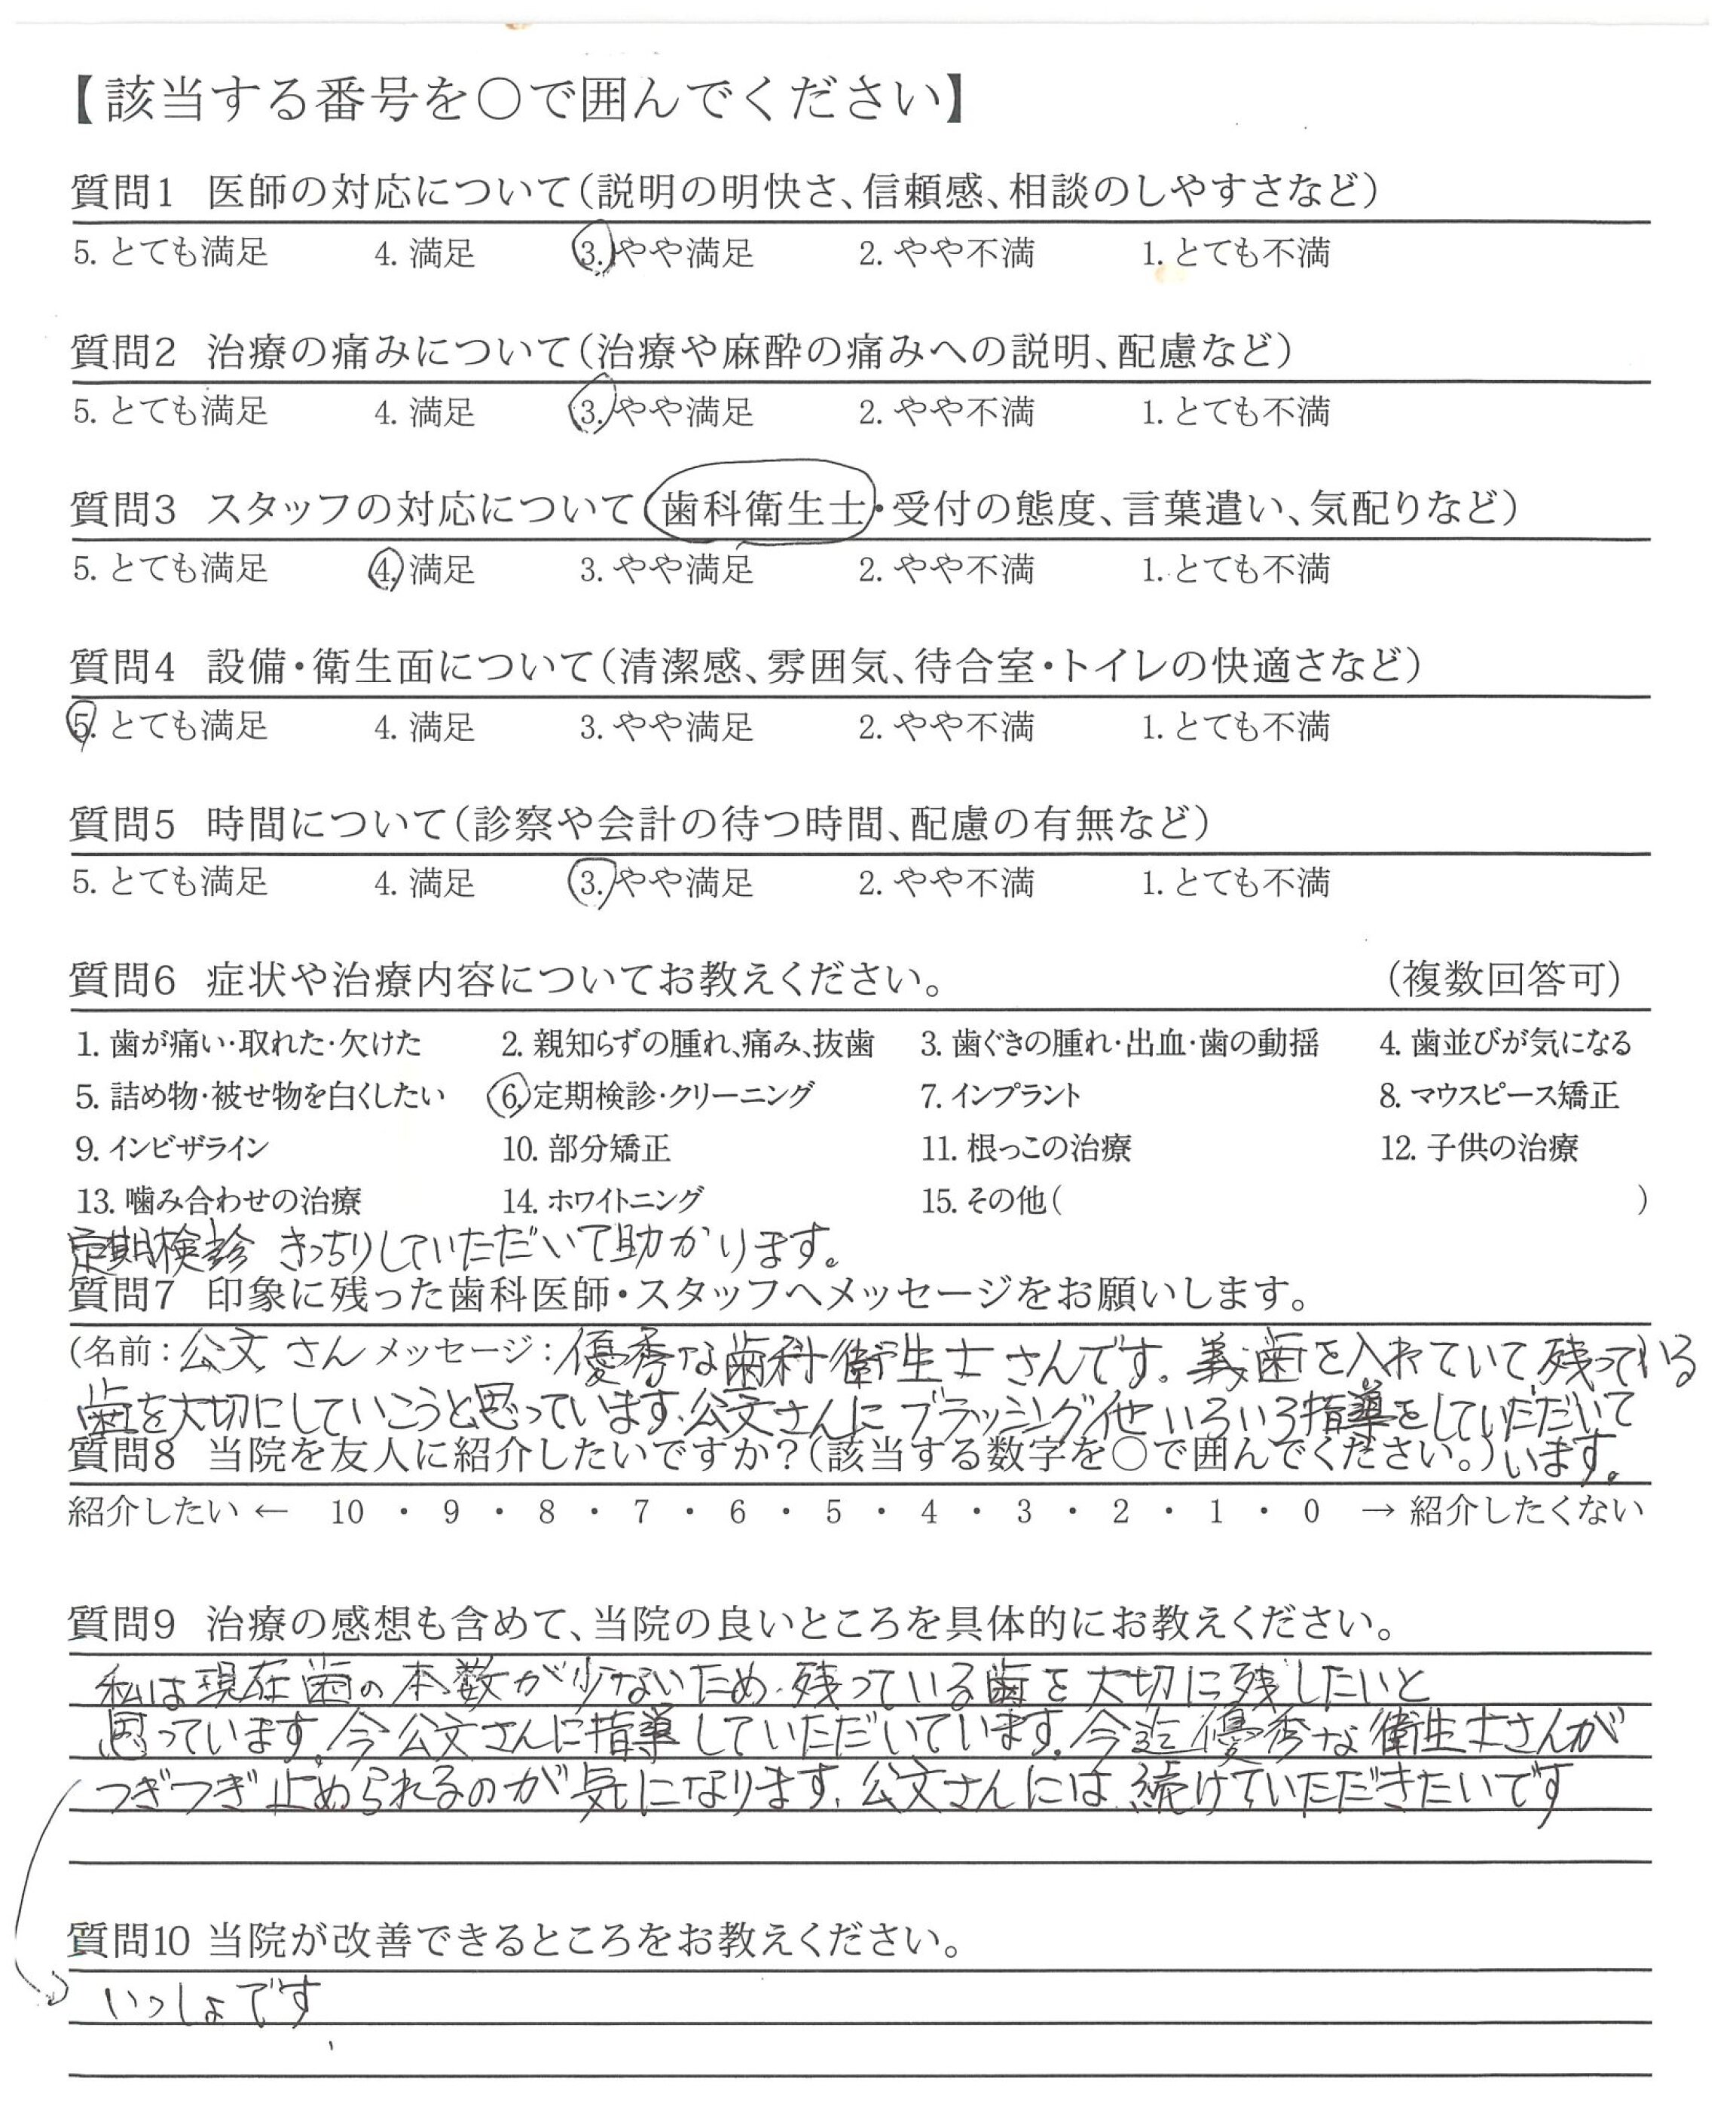 【該当する番号を〇で囲んでください】
質問1 医師の対応について(説明の明快さ、信頼感、相談のしやすさなど)
5. とても満足 4. 満足 3. やや満足 2. やや不満 1. とても不満
質問2 治療の痛みについて(治療や麻酔の痛みへの説明、配慮など)
5. とても満足 4. 満足 3. やや満足 2. やや不満 1. とても不満
質問3 スタッフの対応について(歯科衛生士・受付の態度、言葉遣い、気配りなど)
5. とても満足 4. 満足 3. やや満足 2. やや不満 1. とても不満
質問4 設備・衛生面について(清潔感、雰囲気、待合室・トイレの快適さなど)
5. とても満足 4. 満足 3. やや満足 2. やや不満 1. とても不満
質問5 時間について(診察や会計の待つ時間、配慮の有無など)
5. とても満足 4. 満足 3. やや満足 2. やや不満 1. とても不満
質問6 症状や治療内容についてお教えください。 (複数回答可)
1. 歯が痛い・取れた・欠けた 2. 親知らずの腫れ、痛み、抜歯 3. 歯ぐきの腫れ・出血・歯の動揺 4. 歯並びが気になる
5. 詰め物・被せ物を白くしたい 6. 定期検診・クリーニング 7. インプラント 8. マウスピース矯正
9. インビザライン 10. 部分矯正 11. 根っこの治療 12. 子供の治療
13. 噛み合わせの治療 14. ホワイトニング 15. その他( )
定期検診 きっちりしていただいて助かります。
質問7 印象に残った歯科医師・スタッフへメッセージをお願いします。
(名前:公文 さん メッセージ:優秀な歯科衛生士さんです。義歯を入れていて残っている
歯を大切にしていこうと思っています、公文さんにブラッシング他いろいろ指導をしていただいて
質問8 当院を友人に紹介したいですか?(該当する数字を〇で囲んでください。) います。
紹介したい ← 10 ・ 9 ・ 8 ・ 7 ・ 6 ・ 5 ・ 4 ・ 3 ・ 2 ・ 1 ・ 0 → 紹介したくない
質問9 治療の感想も含めて、当院の良いところを具体的にお教えください。
私は現在歯の本数が少ないため、残っている歯を大切に残したいと
思っています。今公文さんに指導していただいています。今迄優秀な衛生士さんが
つぎつぎ止められるのが気になります、公文さんには、続けていただきたいです
質問10 当院が改善できるところをお教えください。
いっしょです